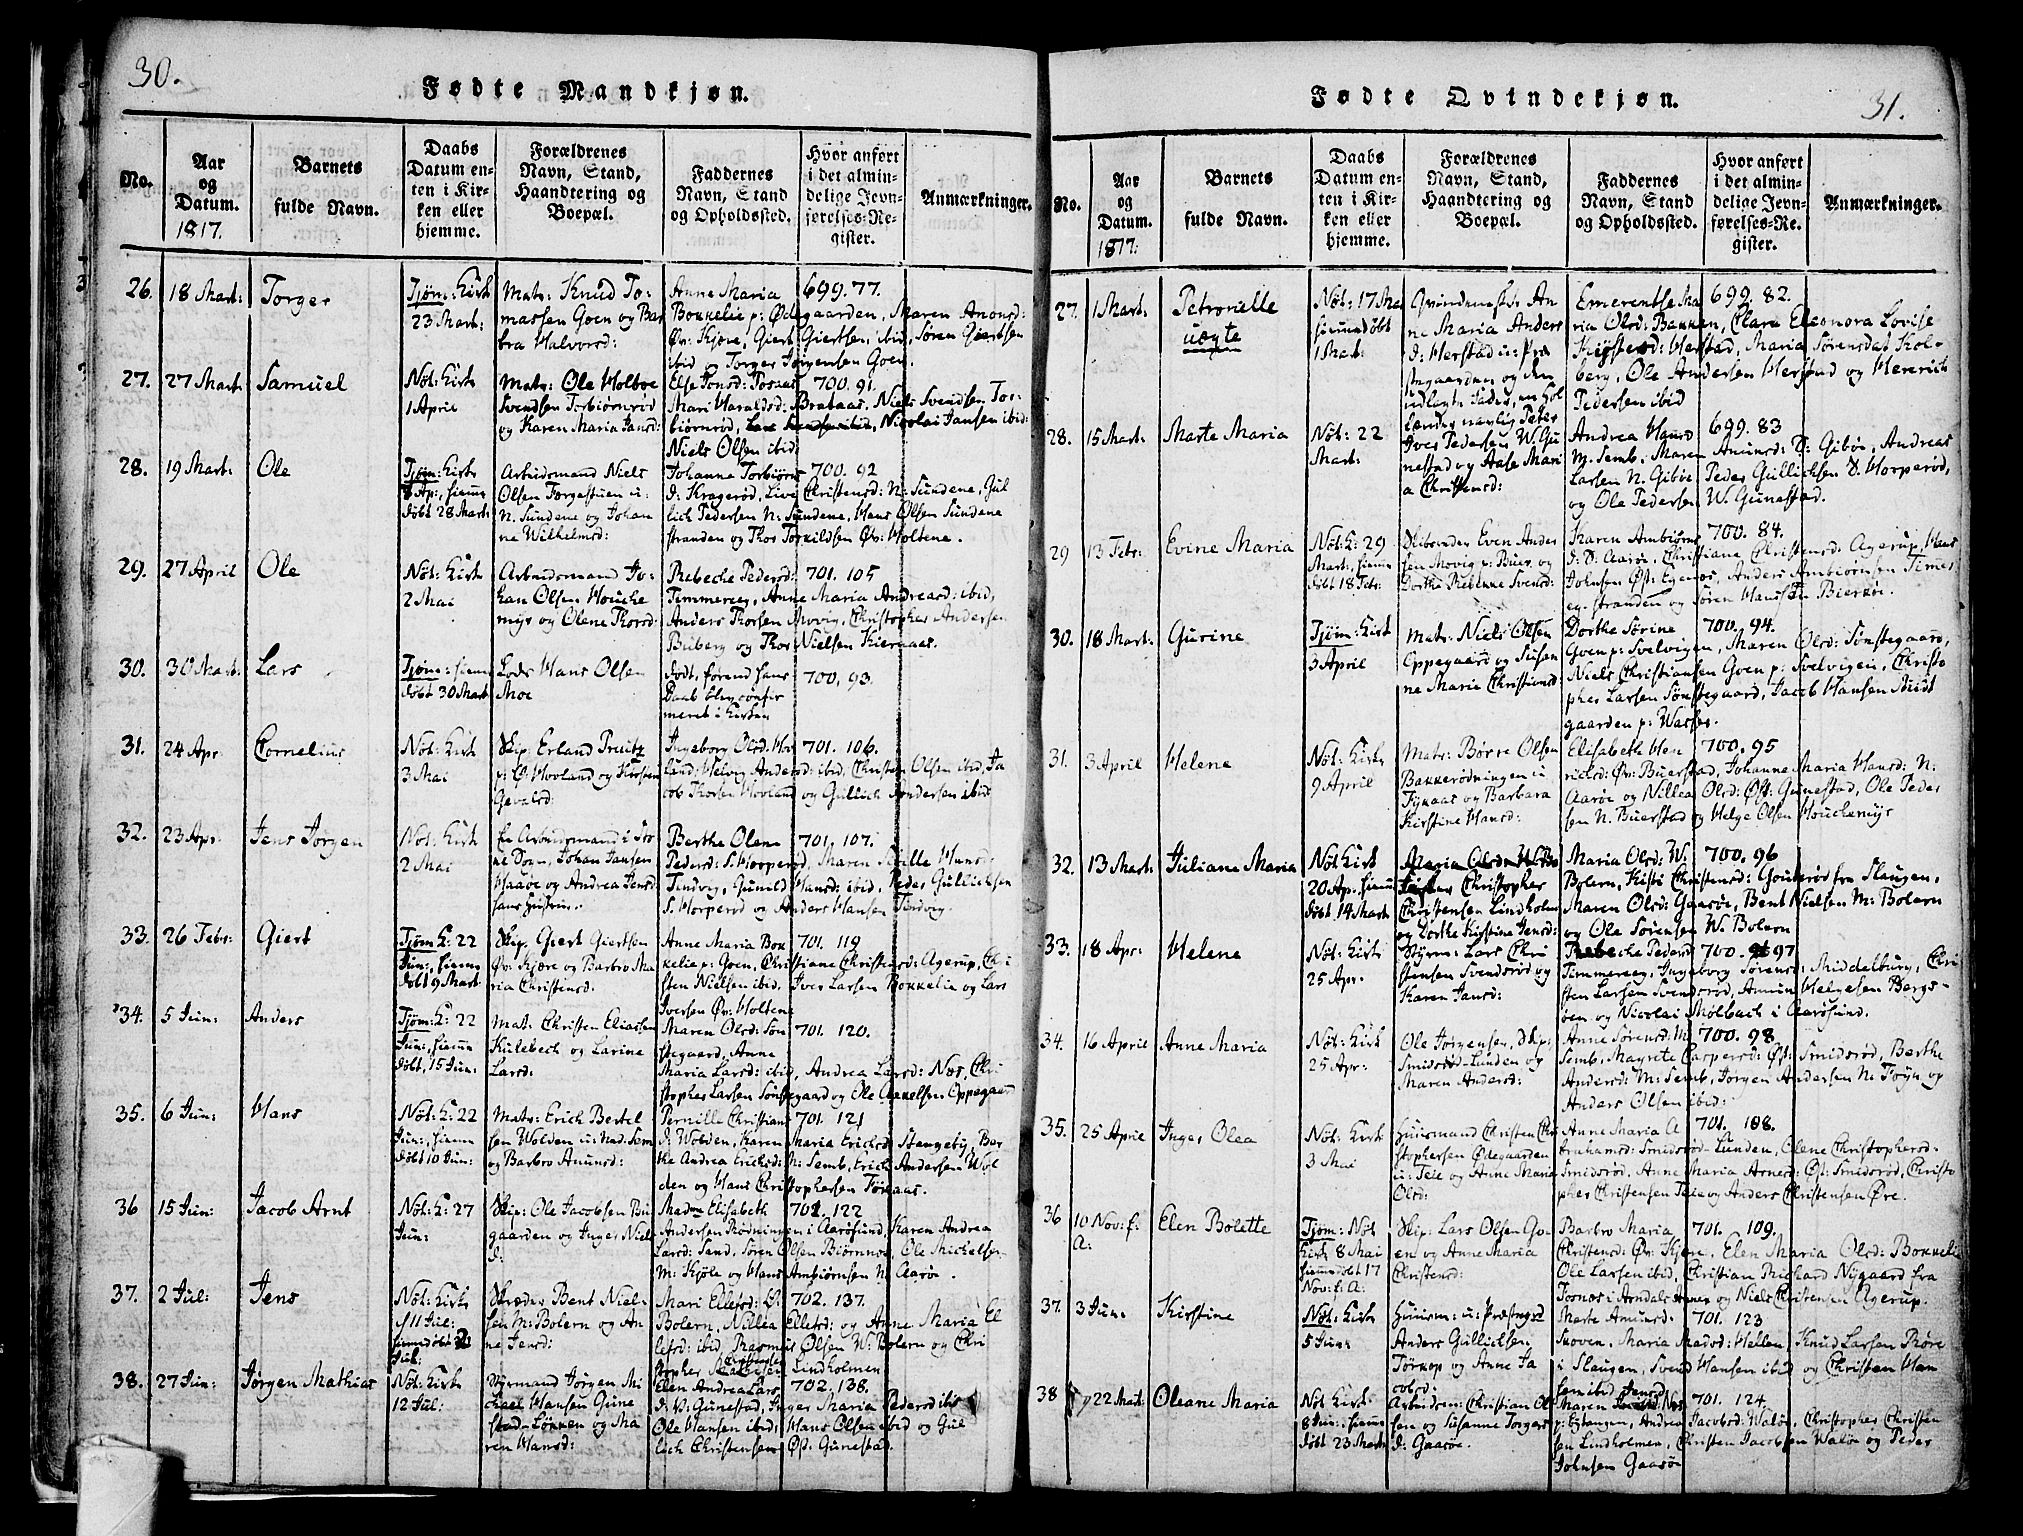 30.
Fødte Mandkjøn.
No.
Aar og Datum. 1817.
Barnets fulde Navn.
Daabs Datum enten i Kirken eller hjemme.
Forældrenes Navn, Stand, Haandtering og Boepæl.
Faddernes Navn, Stand og Opholdssted.
Hvor anført i det almindelige Jevnførelses-Register.
Anmærkninger.
26. 18 Mart: Torger
Tjøm: Kirk 23 Mart:
Mats: Knud Tomassen Goen og Barbra Halvorsd:
Anne Maria Bokkelie p: Ødegaarden, Maren Amonsd: Øv: Kjøre, Giert Giertsen ibid, Søren Giertsen ibid og Torger Jørgensen Goen
699. 77.
27. 27 Mart: Samuel
Nöt: Kirk 1 April
Mats: Ole Holboe Svendsen Torbiørnrød og Karen Maria Jansd:
Else Jonsd: Tornæs Mari Haraldsd: Brataas, Niels Svendsen Torbiørnrød, Nicolai Jansen ibid: Niels Olsen ibid:
700. 91.
28. 19 Mart: Ole
Tjøm: Kirk 8 Ap:, hiemmedøbt 28 Mart:
Arbeidsmand Niels Olsen Torgestuen u: N. Sundene og Johanne Wilhelmsd:
Johanne Torbiørnsd: Kragerød, Live Christensd: N: Sundene, Gullich Pedersen N: Sundene, Hans Olsen Sundene stranden og Thor Torkildsen Øv: Holtene.
700. 92
29. 27 April Ole
Nöt: Kirk 2 Mai
Arbeidsmand Johan Olsen Houchemyr og Olene Thorsd:
Rebeche Pedersd: Timmereeg, Anne Maria Andreasd: ibid, Anders Thorsen Movig, Christopher Andersen Buberg og Thor Nielsen Kiernaas.
701. 105
30. 30 Mart: Lars
Tjøm: hiemmedøbt 30 Mart
Lods Hans Olsen Moe
død, førend hans Daab blev confirmeret i Kirken
700. 93.
31. 24 Apr Cornelius
Nöt: Kirk 3 Mai
Skip: Erland Preutz p: Ø: Hovland og Kirsten Gevalsd:
Ingeborg Olsd: Hovland: Helvig Andersd: ibid, Christen Olsen ibid, Jacob Thorsen Hovland og Gullich Andersen ibid
701. 106.
32. 23 Apr: Jens Jørgen
Nöt: Kirk 2 Mai
En Arbeidsmand i Torne Sogn, Johan Jansen Haaøe og Andrea Jensd: hans Hustru.
Berthe Olene Pedersd: S. Horperød, Maren Sville Hansd: Tindvig, Gunild Hansd: ibid, Peder Gullichsen S. Horperød og Anders Hansen Tindvig.
701. 107.
33. 26 Febr: Giert
Tjøm: K: 22 Jun:, hiemmedøbt 9 Mart:
Skip. Giert Giertsen Øv: Kjøre og Barbro Maria Christensd:
Anne Maria Bokkelie p: Goen, Christiane Christensd: Agerup, Christen Nielsen ibid, Iver Larsen Bokkelia og Lars Iversen Øv: Holtene
701. 119
34. 5 Jun: Anders
Tjøm: K: 22 Jun:, hiemmedøbt, 15 Jun:
Mat: Christen Eliassen Kulebech og Larine Larsd:
Maren Olsd: Sønstegaard, Anne Maria Larsd: ibid, Andrea Larsd: Næs, Christopher Larsen Sønstegaard og Ole Axelsen Oppegaard
701. 120.
35. 6 Jun: Hans
Nöt: K: 22 Jun:, hiemmedøbt 10 Jun:
Mats: Erich Bertelsen Wolden u: Nad: Sem og Barbro Amunsd:
Pernille Christiansd: Wolden, Karen Maria Erichsd: Stangeby, Berthe Andrea Erichsd: N: Semb, Erich Andersen Wolden og Hans Christophersen Føxaas.
701. 121
36 15 Jun: Jacob Arnt
Nöt: K: 27 Jun:
Skip: Ole Jacobsen Bugaarden og Inger Nielsd:
Madme Elisabeth Andersen Rødningen i Aarøsund, Karen Andrea Larsd: Sand, Søren Olsen Biørnnes, Ole Michelsen M: Kjøle og Hans Ambiørnsen N: Aarøe.
702. 122
37. 2 Jul: Jens
Nöt: Kirk 11 Jul: hiemmedøbt 2 Jul:
Skræder Bent Nielsen M: Bolærn og Anne Jensd:
Mari Ellefsd: V: Bolern, Nillea Ellefsd: og Anne Maria Ellefsd: ibid, Rasmus Olsen W: Bolern og Christopher Christensen Lindholmen
702. 137.
38. 27 Jun: Jørgen Mathias
Nöt: Kirk 12 Jul:
Styrmand Jørgen Michael Hansen Gunestad-Løkken og Maren Hansd:
Elen Andrea Larsd: V: Gunestad, Inger Maria Pedersd ibid Ole Hansen ibid: Hans Olsen ibid og Gullich Christensen Øst: Gunestad.
702. 138.
31.
Fødte Qvindekjøn.
No.
Aar og Datum. 1817:
Barnets fulde Navn.
Daabs Datum enten i Kirken eller hjemme.
Forældrenes Navn, Stand, Haandtering og Boepæl.
Faddernes Navn, Stand og Opholdssted.
Hvor anført i det almindelige Jevnførelses-Register.
Anmærkninger.
27. 1 Mart: Petronelle uægte
Nöt: 17 Mart hiemmedøbt 1 Mart:
Qvindemsk: Anne Maria Andersd: Herstad u: Præstegaarden og den udlagte Fader, en Hollænder navnlig Peter
Emerentse Maria Olsd: Bakken, Clara Eleonora Lovise Kiøstersd: Herstad, Maria Sørensdat Kolberg, Ole Andersen Herstad og Henrich Pedersen ibid
699. 82.
28. 15 Mart: Marte Maria
Nöt: 22 Mart:
Iver Pedersen W. Gunestad og Aase Maria Christensd:
Andrea Hansd M. Semb, Maren Amunsd: S: Gibøe, Andreas Larsen N. Gibøe, Peder Gullichsen S. Horperød, og Ole Pedersen W. Gunestad.
699. 83
29 13 Febr: Evine Maria
Nöt: K: 29 Mart:, hiemmedøbt 18 Febr:
Slibereder Even Andersen Movig p: Buer og Dorthe Rebekke Svensd:
Karen Ambiørnsd: S. Aarøe, Christiane Christensd: Agerup, Hans Johnsen Øst: Egenes, Anders Ambiørnsen Timeseg-stranden og Søren Hansen Bierkøe.
700. 84.
30. 18 Mart: Gurine
Tjøm: Kirk 3 April
Mats: Niels Olsen Oppegaard og Susanne Marie Christiensd:
Dorthe Sørine Goen p: Svelvigen, Maren Olsd: Sønstegaard, Niels Christiansen Goen p: Svelvigen, Christopher Larsen Sønstegaard, Jacob Hansen Sundtgaarden p: Wasser.
700. 94.
31. 3 April Helene
Nöt: Kirk 9 April
Mats: Børre Olsen Bakkerødningen u: Fyxaas og Barbara Kirstine Hansd:
Elisabeth Henrichsd: Øv: Buerstad, Johanne Maria Hansd: N: Aarøe og Nillea Olsd: Øst: Gunestad, Ole Pedersen N. Buerstad og Helge Olsen Houchemyr
700. 95
32. 13 Mart: Juliane Maria
Nöt Kirk 20 Ap: hiemmedøbt 14 Mart
Christopher Christensen Lindholmen og Dorthe Kirstine Jensd:
Maria Olsd: W. Bolern, Kisti Christensd: Gouterød fra Slaugen, Maren Olsd: Gaasøe, Bent Nielsen M: Bolern og Ole Sørensen W: Bolern
700. 96
33. 18 Apr: Helene
Nöt: Kirk 25 Apr:
Styrm: Lars Christensen Svendsrød og Karen Jansd:
Rebeche Pedersd Timmereeg, Ingeborg Sørensd: Middelburg, Christen Larsen Svendsrød, Amun Helgesen Bergsøen og Nicolai Mølbach i Aarøsund.
700. 97
34. 16 April Anne Maria
Nöt: Kirk 25 Apr:
Ole Jørgensen, Skip: Smidsrød-Lunden og Maren Andersd:
Anne Sørensd: M: Semb, Magrete Caspersd: Øst: Smidsrød, Berthe Andersd: M: Semb, Jørgen Andersen N: Føyn og Anders Olsen ibid:
700. 98.
35. 25 April Inger Olea
Nöt: Kirk 3 Mai
Huusmand Christen Christophersen Ødegaarden u: Teie og Anne Maria Olsd:
Anne Maria Abrahamsd: Smidsrød-Lunden, Olene Christophersd: Smidsrød, Anne Maria Arnesd: Øst: Smidsrød, Christopher Christensen Teie og Anders Christensen Øre.
701. 108.
36 10 Nov: f: A: Elen Bolette
Tjøm: Nöt Kirk 8 Mai hiemmedøbt 17 Nov: f: A:
Skip: Lars Olsen Goen og Anne Maria Christensd:
Barbro Maria Christensd: Øv: Kjøre, Elen Maria Olsd: Bokkelie Ole Larsen ibid, Christian Richard Nygaard fra Tornæs i Arndals Amt og Niels Christensen Agerup.
701. 109.
37. 3 Jun. Kirstine
Nöt: Kirk 5 Jun:
Huusm: u: Præstegrd Anders Gullichsen Tørkop og Anne Jacobsd:
Marte Amunsd: Skoven, Maria Madsd: Hellen, Knud Larsen Røre i Slaugen, Svend Hansen ibid og Christen Hansen ibid
701. 123
38 22 Mart: Oleane Maria
Nöt Kirk: 8 Jun: hiemmedøbt 23 Mart:
Arbeidsm: Christian Olsen og Susanne Torgersd: Gaasøe.
Maren Jensd Næs p: Estangen, Andrea Jacobsd: Waløe, Christopher Christensen Lindholmen, Christen Jacobsen Waløe og Peder Johnsen Gaasøe
701. 124.